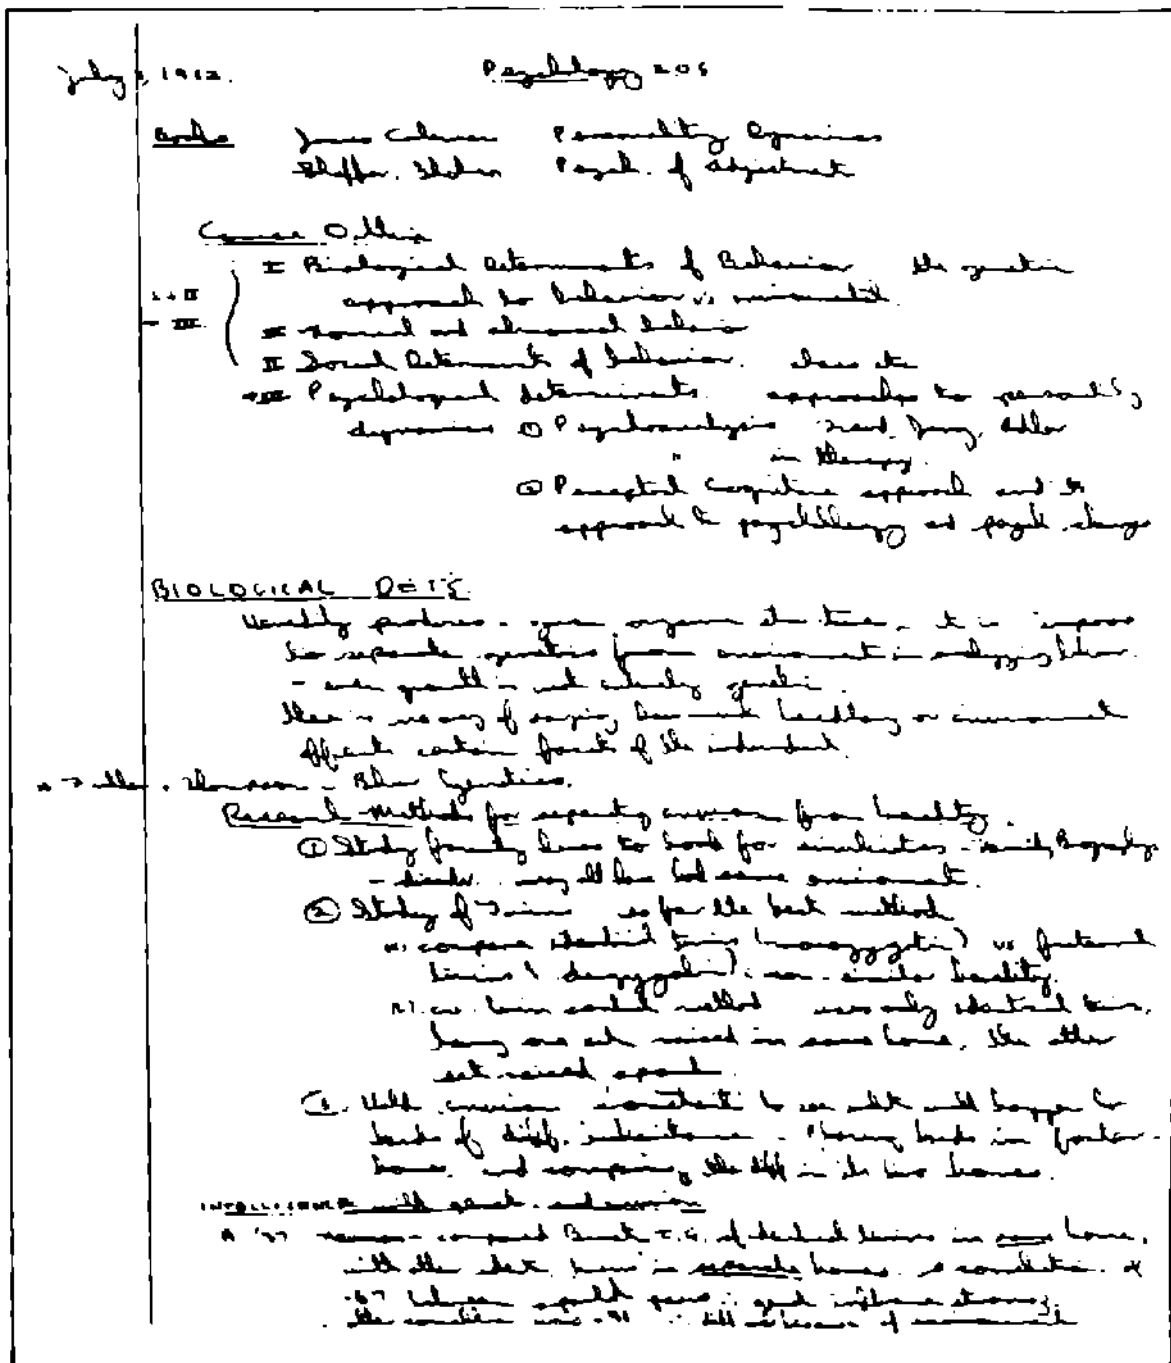 July 2, 1962. Psychology 205
Books James Coleman Personality Dynamics
Shaffer, Shoben Psych. of Adjustment
Course Outline
I Biological Determinants of Behavior the genetic
approach to behavior vs
III Normal and abnormal behavior
II Social Determinants of behavior. class etc
Psychological determinants. approaches to personality
dynamics ① Psychoanalysis Freud, Jung, Adler
" in therapy.
② Perceptual Cognitive approach and its
approach to and psych. change
BIOLOGICAL DETS.
Heredity produces organism it is imposs
to separate genetics from environment in analyzing behav.
- even growth is not entirely genetic.
there is no way of saying how much heredity or environment
affects certain facets of the individual.
Thompson - Behav Genetics.
Research Methods for separating environ from heredity.
① Study family lines to look for similarities - family Biography.
- may all have had same environment.
② Study of Twins so far the best method
compare identical twins (monozygotic) vs fraternal
twins (dizygotic). similar heredity.
co. twin control method uses only identical twins,
having one set raised in same home, the other
set raised apart.
Hold environ constant to see what will happen to
kids of diff. inheritance - placing kids in foster
home, and comparing the diff in the two homes.
INTELLIGENCE with genet. and environ
A '37 Newman - compared Binet I.Q. of identical twins in same home,
with other ident. twins in separate homes. correlation of
.67 between
the correlation was .91